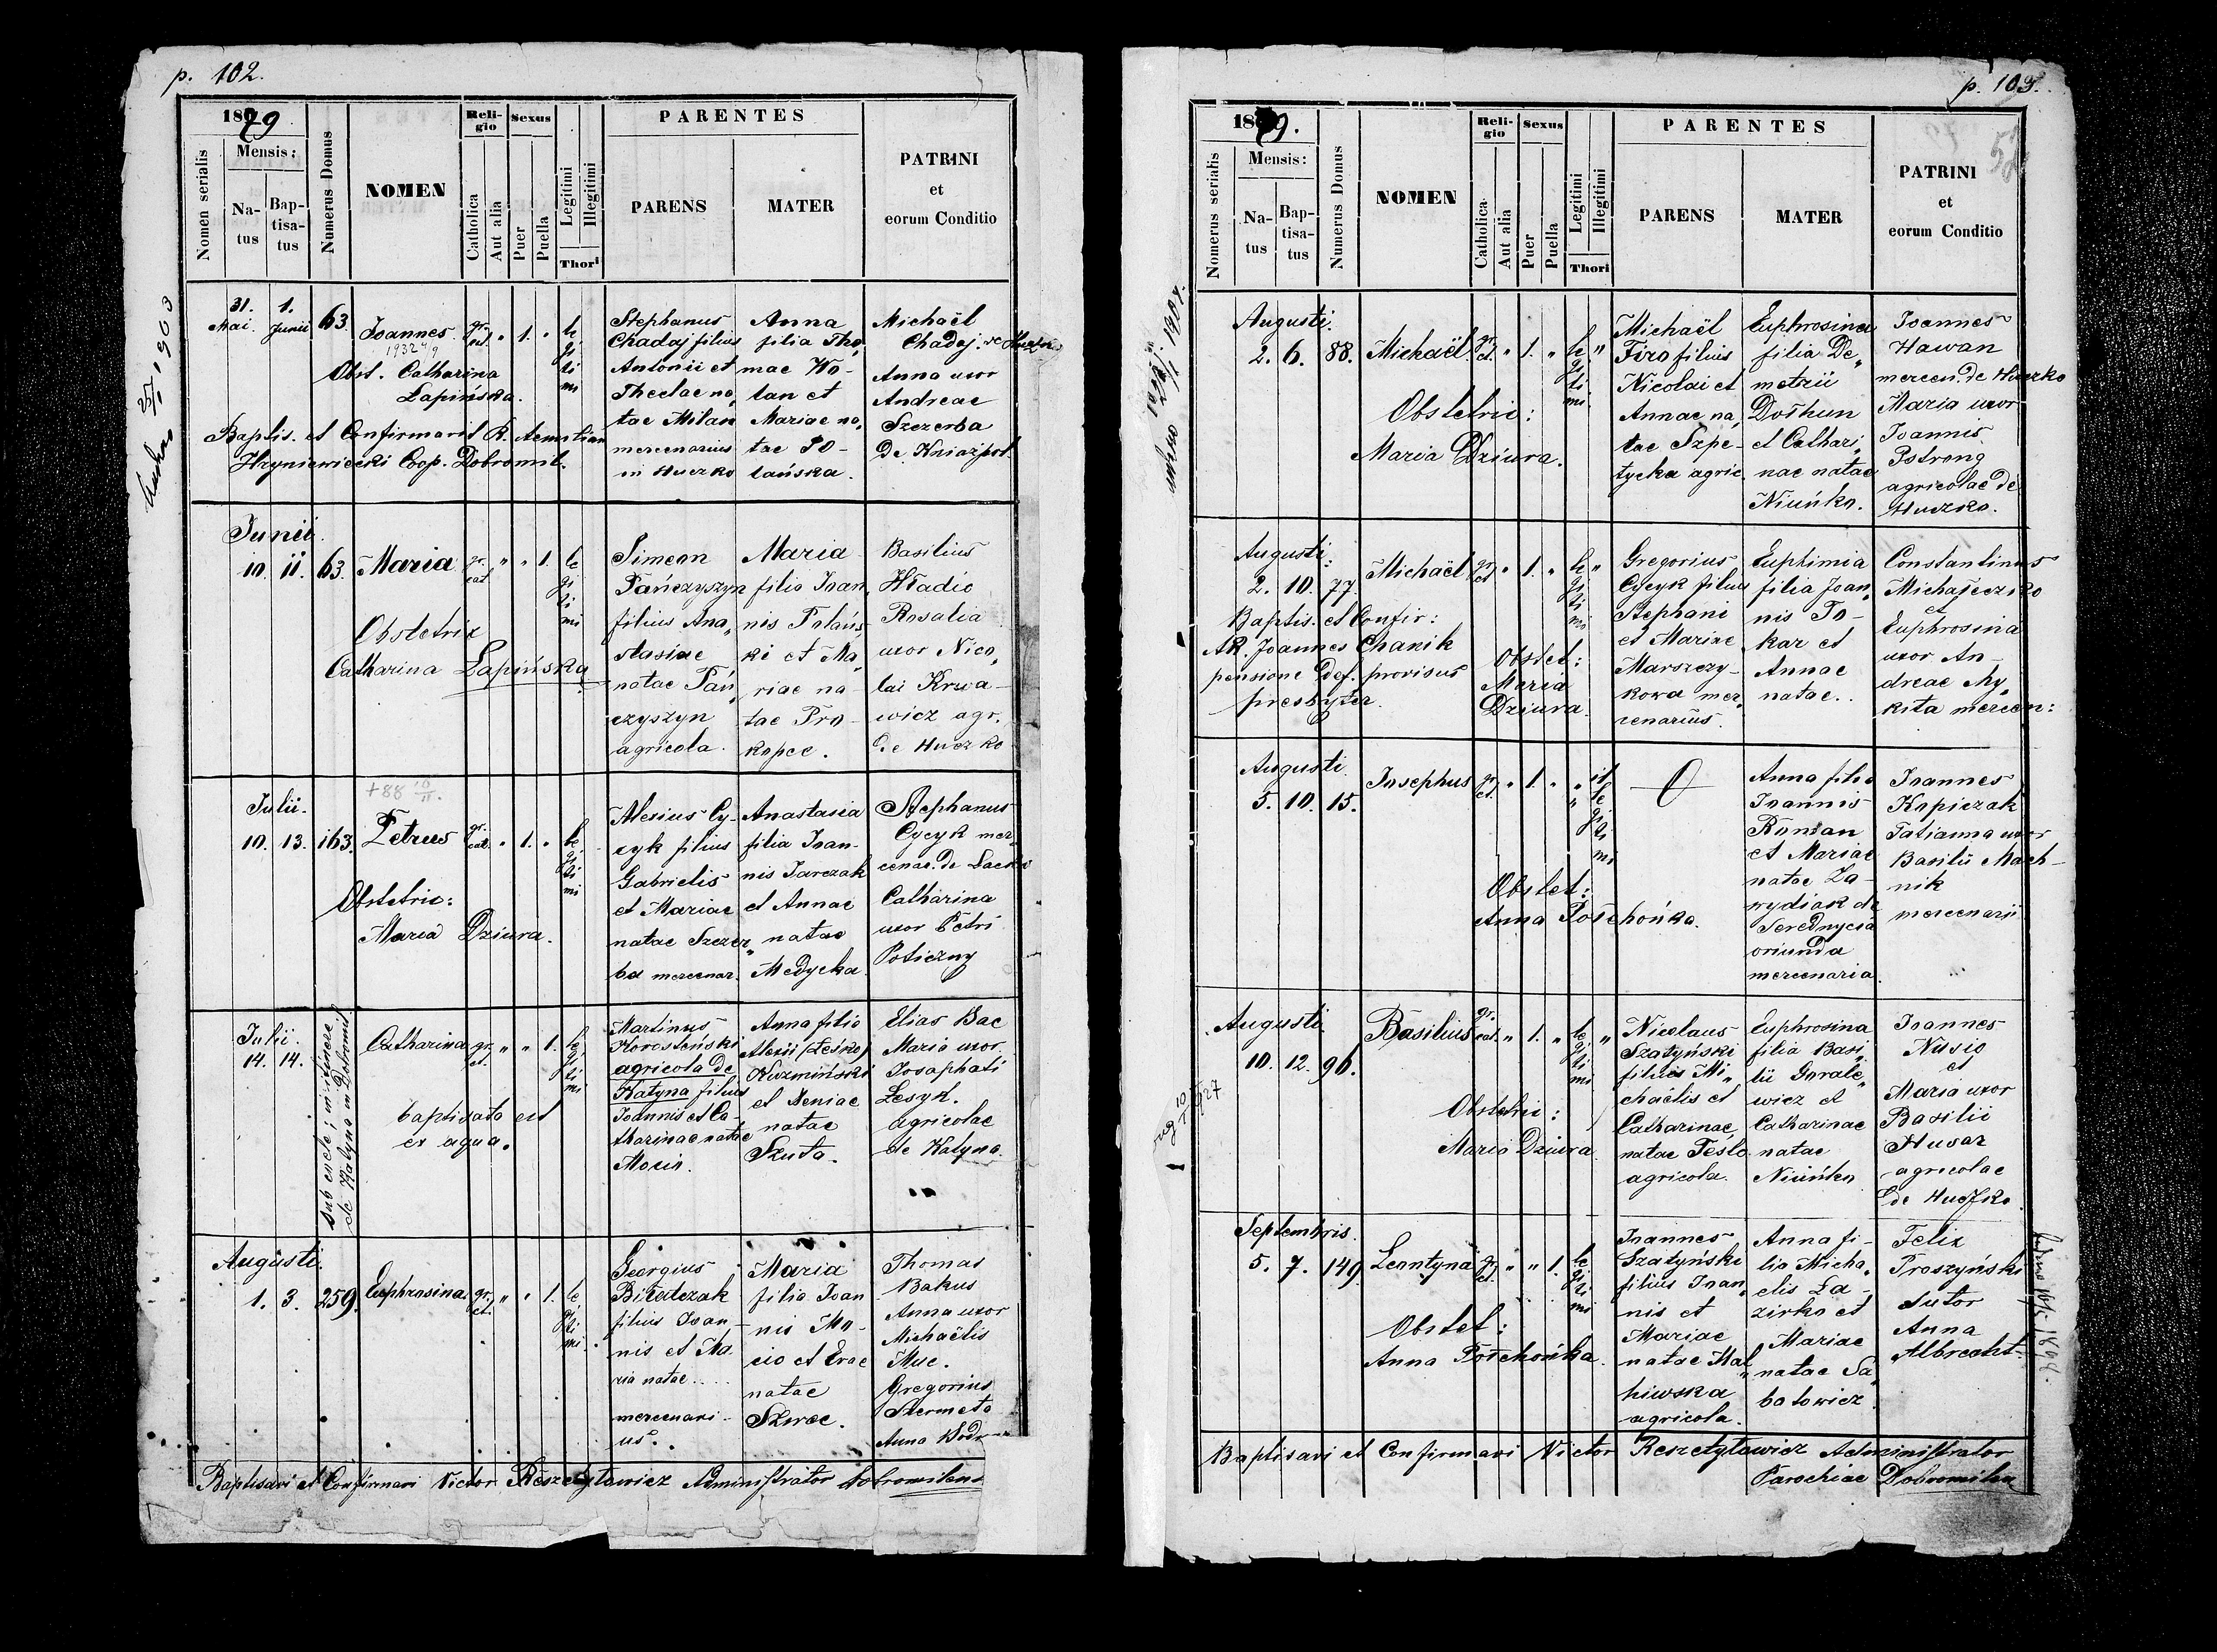 p. 102.
1879
Mensis:
Nomen serialis
Na-
tus
Bap-
tisa-
tus
Numerus Domus
NOMEN
Reli-
gio
Catholica
Aut alia
Sexus
Puer
Puella
Legitimi
Illegitimi
Thori
PARENTES
PARENS
MATER
PATRINI
et
eorum Conditio
31.
Mai.
1.
Junii
63.
Joannes
1932
Obst. Catharina
Łapińska.
Baptis. et Confirmavit R.
Hryniewiecki Coop. Dobromil.
gr.
cat.
" 1. "
le
gi
ti
mi
Stephanus
Chadaj filius
Antonii et
Theclae na„
tae Milan
mercenarius
in Huczko
Anna
filia Tho„
mae Wo-
tan et
Mariae na„
tae Po-
lańska.
Michaël
Chadaj. de Huczko
Anna uxor
Andreae
Szczerba
De Kniażpol.
Junii.
10. 11. 63.
Maria
Obstetrix
Catharina Łapińska
gr.
cat.
" " 1.
le
gi
ti
mi
Simeon
Pańczyszyn
filius Ana„
stasiae
natae Pań„
czyszyn
agricola.
Maria
filia Joan„
nis Polańs„
ki et Ma„
riae na-
tae Pro-
kopec.
Basilius
Hładio
Rosalia
uxor Nico„
lai Krwa-
wicz agr.
de Huczko
Julii.
10. 13. 163.
+88 10/11.
Petrus
Obstetrix:
Maria Dziura.
gr.
cat.
" 1. "
le
gi
ti
mi
Alexius Cy-
cyk filius
Gabrielis
et Mariae
natae Szczer„
ba mercenar.
Anastasia
filia Joan-
nis Jarczak
et Annae
natae
Medycka.
Stephanus
Cycyk mer„
cenar. de Lacko
Catharina
uxor Petri
Poticzny
Julii.
14. 14.
sub onele; in itinere
de Katyna in Dobromil
Catharina
baptisata est
ex aqua.
gr.
ct.
" " 1.
le
gi
ti
mi
Martinus
Korosteński
agricola de
Katyna filius
Joannis et Ca-
tharinae natae
Mocio.
Anna filia
Alexii (Leśko)
Kuzmiński
et Xeniae
natae
Szuta.
Elias Bac
Maria uxor
Josaphati
Lesyk.
agricolae
de Katyna.
Augusti.
1. 3. 259.
Euphrosina
gr.
ct.
" " 1.
le
gi
ti
mi
Georgius
filius Joan-
nis et Ma
ria natae....
mercenari-
us.
Maria
filia Joan
nis Mo-
cio et Evae
natae
Szwec.
Thomas
Bakus
Anna uxor
Michaëlis
Muc.
Gregorius
Szermeta
Anna
Baptisavi et Confirmavi Victor Reszetyłowicz Administrator Dobromilens
p. 103.
1879.
Mensis:
Nomerus serialis
Na-
tus
Bap-
tisa-
tus
Numerus Domus
NOMEN
Reli-
gio
Catholica
Aut alia
Sexus
Puer
Puella
Legitimi
Illegitimi
Thori
PARENTES
PARENS
MATER
PATRINI
et
eorum Conditio
Augusti.
2. 6. 88.
Michaël
Obstetrix:
Maria Dziura.
gr.
ct.
" 1. "
le "
gi
ti
mi
Michaël
Firo filius
Nicolai et
Annae na„
tae Szpe-
tycka agric.
Euphrosina
filia De„
metrii
Doshun
et Cathari„
nae natae
Niuńko.
Joannes
Hawan
mercen. de Huczko
Maria uxor
Joannis
Pstrong
agricolae de
Huczko.
Augusti.
2. 10. 77.
Michaël
Baptis. et Confir:
AR. Joannes Chanik
pensione def. provisus
presbyter.
Obstet:
Maria
Dziura
gr.
ct.
" 1. "
le "
gi
ti
mi
Gregorius
Cycyk filius
Stephani
et Mariae
Marszczy-
kowa mer„
cenarius.
Euphimia
filia Joan„
nis To-
kar et
Annae
natae..
Constantinus
Michajeczko
et
Euphrosina
uxor An-
dreae My„
kita mercen:
Augusti.
5. 10. 15.
Josephus
Obstet:
gr.
ct.
" 1. "
il
le
gi
ti
mi
Anna filia
Joannis
Roman
et Mariae
natae Za-
wydiak de
Serednycia
oriunda
mercenaria.
Joannes
Kopiczak
Tatianna uxor
Basilii Mach-
nik
mercenarii
Augusti
10. 12. 96.
Basilius
Obstetrix:
Maria Dziura.
gr.
cat.
" 1. "
le "
gi
ti
mi
Nicolaus
Szatyński
filius Mi„
chaëlis et
Catharinae
natae Feslo
agricola.
Euphrosina
filia Basi„
lii Gorale„
wicz et
Catharinae
natae
Niuńko
Joannes
Nusio
et
Maria uxor
Basilii
Husar
agricolae
de Huczko.
Septembris.
5. 7. 149.
Leontyna
Obstet:
gr.
ct.
" " 1.
le
gi
ti
mi
Joannes
Szatyński
filius Joan„
nis et
Mariae
natae Hal„
kiwska
agricola.
Anna fi-
lia Micha„
elis La-
zirko et
Mariae
natae Sa„
batowicz.
Felix
Proszyński
sutor
Anna
Albrecht.
Baptisavi et Confirmavi Victor Reszetyłowicz Administrator
Parochiae Dobromilen